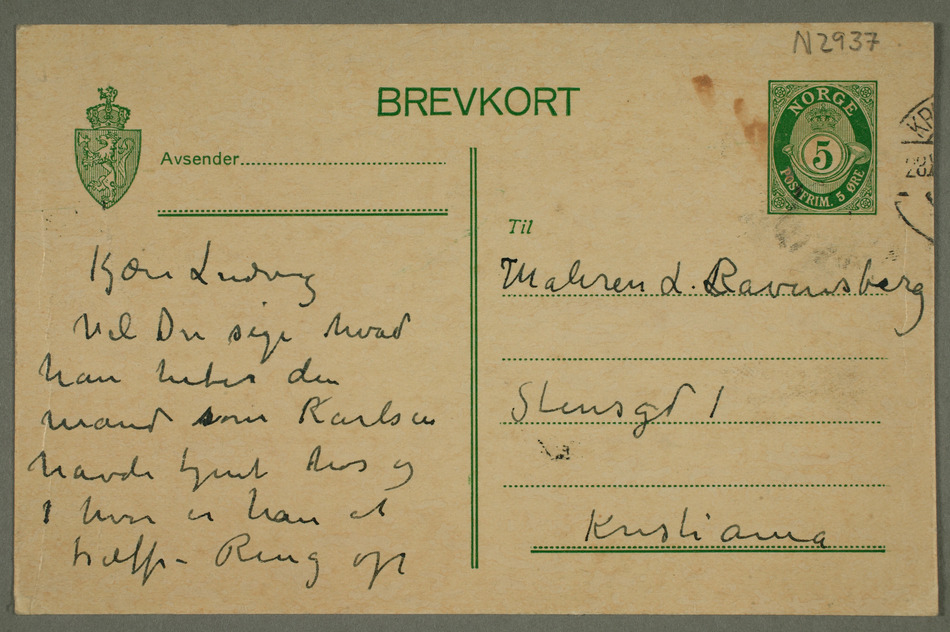 N2937
BREVKORT
NORGE
5
POSTFRIM. 5 ØRE
KR
28
Avsender
Til
Kjære Ludvig
Vil Du sige hvad
han heter den
mand som Karlsen
havde tjent hos og
hvor er han at
træffe - Ring op
Maleren L. Ravensberg
Stensgd 1
Kristiania